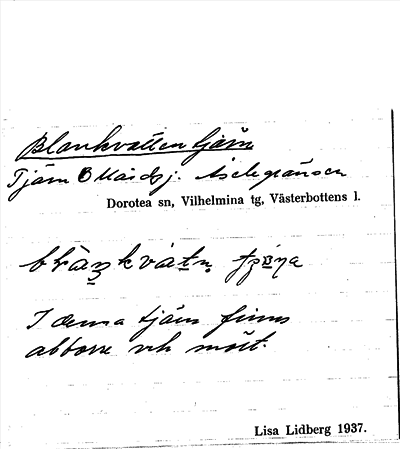 Blankvattentjärn
Tjärn O Måsdsj. Åselegränsen
Dorotea sn, Vilhelmina tg, Västerbottens l.
I denna tjärn finns
abborre och mört.
Lisa Lidberg 1937.